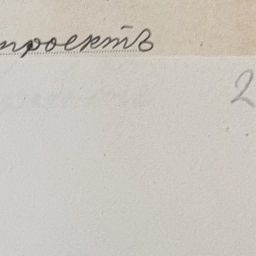 проектъ
2